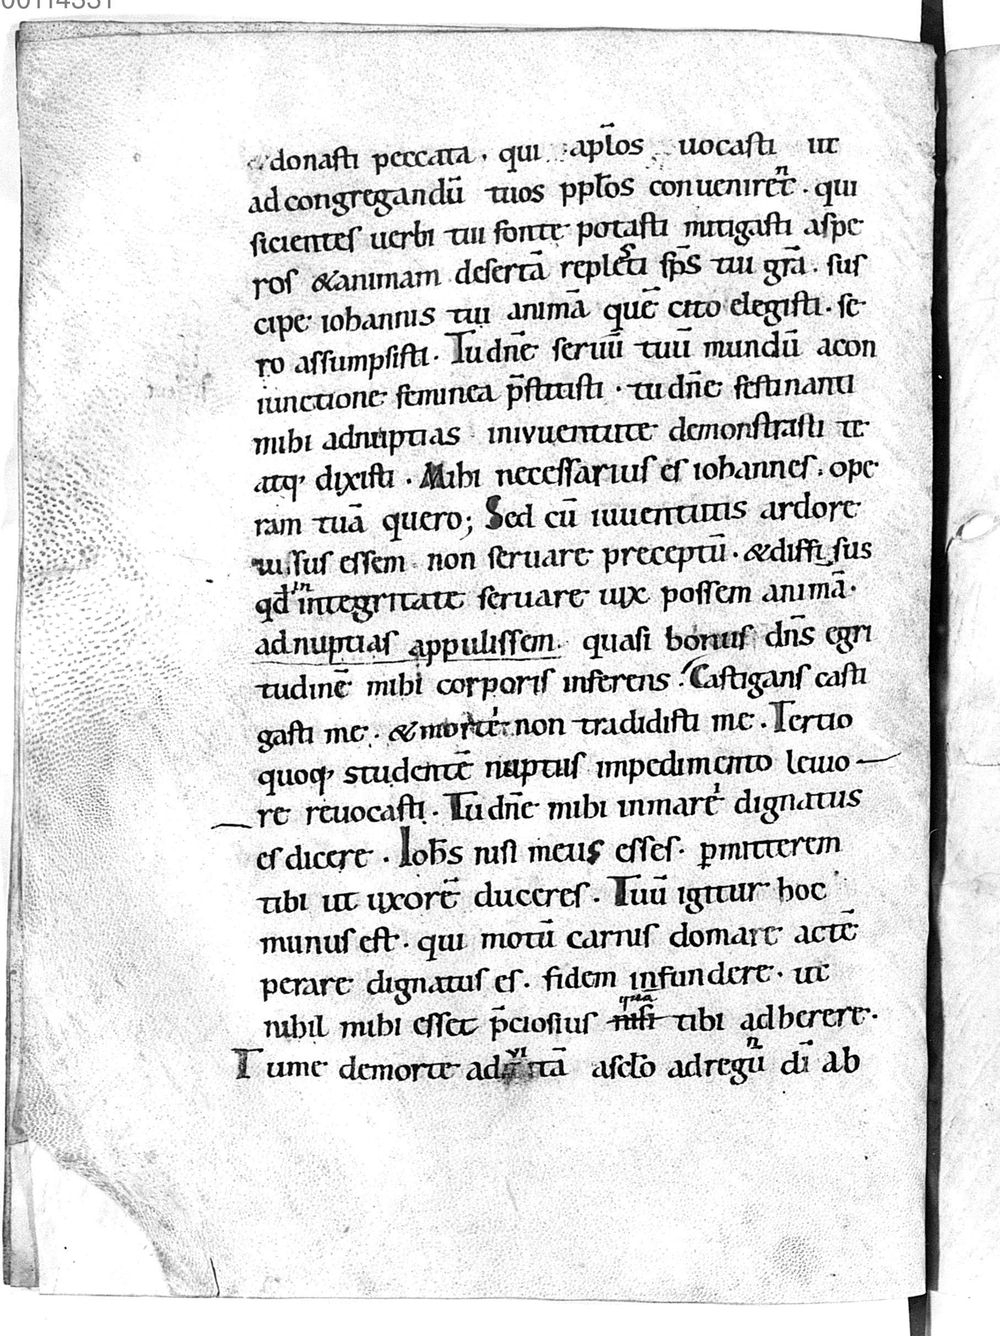 donasti peccata. qui apl̄os uocasti ut
ad congregandū tuos pp̄los conuenirent. qui
sicientes uerbi tui fonte potasti mitigasti aspe
ros & animam desertā replesti sp̄s tui gr̄a. sus
cipe iohannis tui animā quē cito elegisti. se
ro assumpsisti. Tu dn̄e seruū tuū mundū a con
iunctione feminea p̄stitisti. tu dn̄e festinanti
mihi ad nuptias in iuuentute demonstrasti te
atq; dixisti. Mihi necessarius es iohannes. ope
ram tuā quero; Sed cū iuuentutis ardore
uisus essem non seruare preceptū. & diffisus
qđ in integritate seruare uix possem animā.
ad nuptias appulissem. quasi bonus dn̄s egri
tudinē mihi corporis inferens. Castigans casti
gasti me. & morte non tradidisti me. Tertio
quoq; studentē nuptiis impedimento leuio
re reuocasti. Tu dn̄e mihi in mare dignatus
es dicere. Ioh̄s nisi meus esses. pmitterem
tibi ut uxorē duceres. Tuū igitur hoc
munus est. qui motū carnis domare ac tē
perare dignatus es. fidem infundere. ut
nihil mihi esset p̄ciosius nisi quā tibi adherere.
Tu me de morte ad uitā ascl̄o ad regnū dī ab